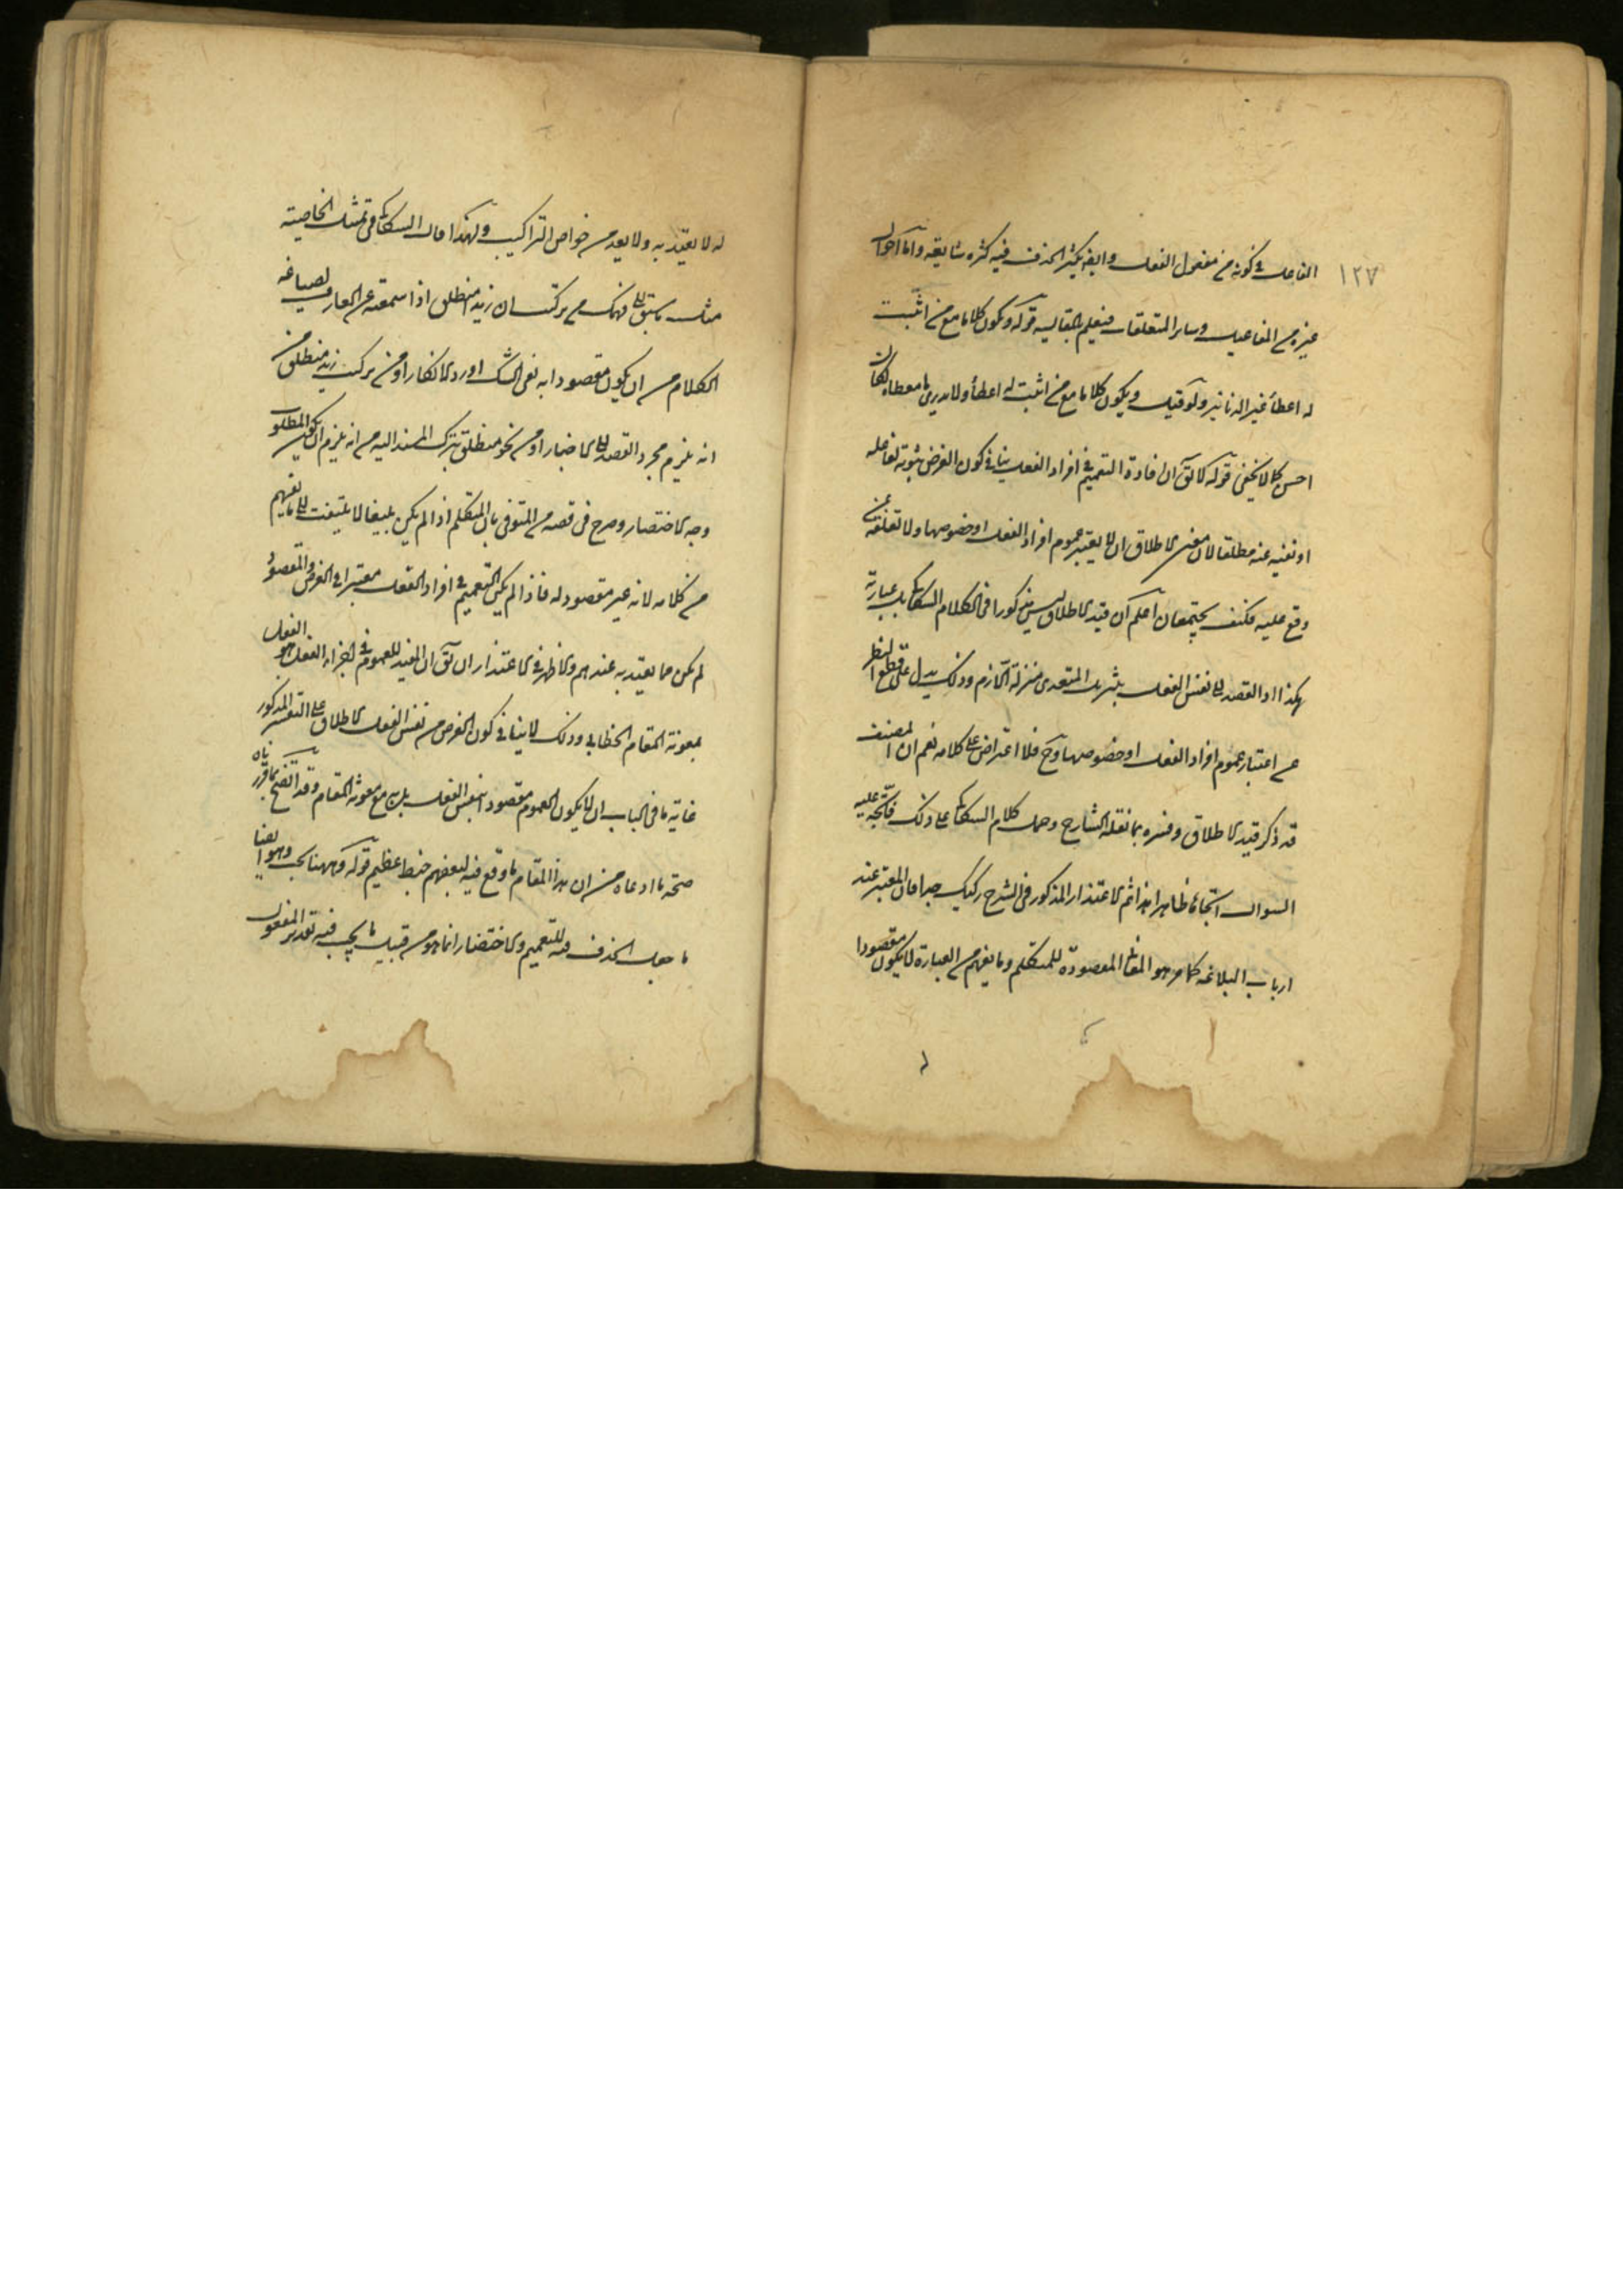 ١٢٧
الفاعل في كونه من مفعول الفعل وايضا يكثر الحذف فيه كثرة شايعة واما احوال
غيره من المفاعيل وساير المتعلقات فيعلم بالمقايسة قوله ويكون كلاما مع من اثبت
له اعطاء غير الدنانير ولو قيل ويكون كلاما مع من اثبت له اعطاء ولا يدرى ما معطاه لكان
احسن كما لا يخفى قوله لا يق ان افادة التعميم في افراد الفعل ينافي كون الغرض ثبوته لفاعله
او نفيه عنه مطلقا لان معنى الاطلاق ان لا يعتبر عموم افراد الفعل او خصوصها ولا تعلقه بمن
وقع عليه فكيف يجتمعان اعلم ان قيد الاطلاق ليس مذكورا في الكلام السكاكي بل عبارته
هكذا او القصد الى نفس الفعل بتنزيل المتعدى منزلة اللازم وذلك يدل على قطع النظر
عن اعتبار عموم افراد الفعل او خصوصها وح فلا اعتراض على كلامه نعم ان المصنف
قد ذكر قيد الاطلاق وفسره بما نقله الشارح وحمل كلام السكاكي على ذلك فاتجه عليه
السوال اتجاها ظاهرا هذا ثم الاعتذار المذكور في الشرح ركيك جدا فان المعتبر عند
ارباب البلاغة كما مر هو المعاني المقصودة للمتكلم وما يفهم من العبارة لا يكون مقصودا
له لا يعتد به ولا يعد من خواص التراكيب ولهذا قال السكاكي في تمثيل الخاصية
مثل ما يسبق الى فهمك من تركيب ان زيدا منطلق اذا سمعته عن العارف بصياغة
الكلام من ان يكون مقصودا به نفى الشك او رد الانكار او من تركيب زيد منطلق من
انه يلزم مجرد القصد الى الاخبار او من نحو منطلق بترك المسند اليه من انه يلزم ان يكون المطلوب
وجه الاختصار وصرح في قصة من المتوفى بان المتكلم اذا لم يكن بليغا لا يلتفت الى ما يفهم
من كلامه لانه غير مقصود له فاذا لم يكن التعميم في افراد الفعل معتبرا في الغرض والمقصود
لم يكن مما يعتد به عندهم والاظهر في الاعتذار ان يق ان المفيد للعموم في افراد الفعل هو الفعل
بمعونة المقام الخطابي وذلك لا ينافي كون الغرض من نفس الفعل الاطلاق على التفسير المذكور
غاية ما في الباب ان لا يكون العموم مقصودا بنفس الفعل بل به مع معونة المقام وقد اتضح بما قررناه
صحة ما ادعاه من ان هذا المقام ما وقع فيه لبعضهم خبط عظيم قوله وههنا بحث وهو ايضا
ما جعل الحذف فيه للتعميم والاختصار انما هو من قبيل ما يجب فيه تقدير المفعول